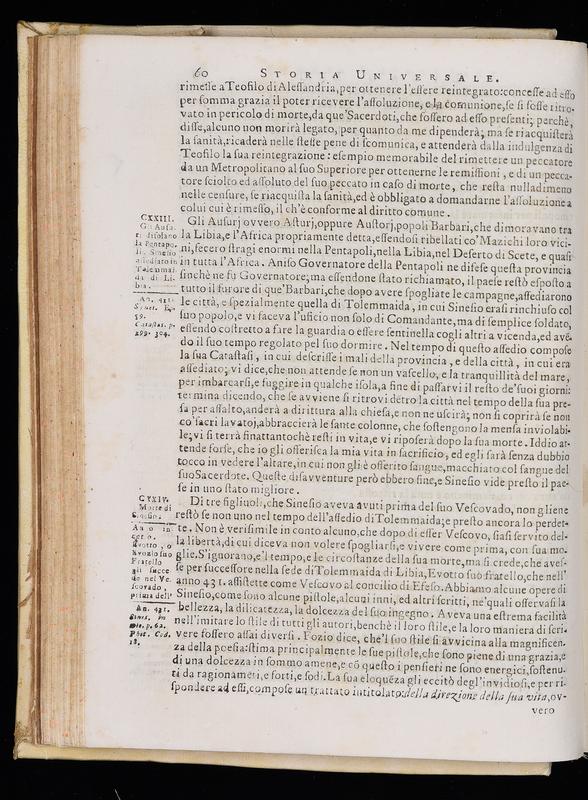 60 STORIA UNIVERSALE.
rimesse a Teofilo di Alessandria, per ottenere l'essere reintegrato: concesse ad esso
per somma grazia il poter ricevere l'assoluzione, e la comunione, se si fosse ritro-
vato in pericolo di morte, da que' Sacerdoti, che fossero ad esso presenti; perchè,
disse, alcuno non morirà legato, per quanto da me dipenderà; ma se riacquisterà
la sanità, ricaderà nelle stesse pene di scomunica, e attenderà dalla indulgenza di
Teofilo la sua reintegrazione: esempio memorabile del rimettere un peccatore
da un Metropolitano al suo Superiore per ottenerne le remissioni, e di un pecca-
tore sciolto ed assoluto del suo peccato in caso di morte, che resta nulladimeno
nelle censure, se riacquista la sanità, ed è obbligato a domandarne l'assoluzione a
colui cui è rimesso, il ch'è conforme al diritto comune.
CXXIII.
Gli Ausu-
rj desolano
la Pentapo-
li. Sinesio
assediato in
Tolemmai-
da di Li-
bia.
An. 411.
Sines. Ep.
59.
Catastas. p.
299. 304.
Gli Ausurj ovvero Asturj, oppure Austorj, popoli Barbari, che dimoravano tra
la Libia, e l'Africa propriamente detta, essendosi ribellati co' Mazichi loro vici-
ni, fecero stragi enormi nella Pentapoli, nella Libia, nel Deserto di Scete, e quasi
in tutta l'Africa. Aniso Governatore della Pentapoli ne difese questa provincia
sinchè ne fu Governatore; ma essendone stato richiamato, il paese restò esposto a
tutto il furore di que' Barbari, che dopo avere spogliate le campagne, assediarono
le città, e spezialmente quella di Tolemmaida, in cui Sinesio erasi rinchiuso col
suo popolo, e vi faceva l'uficio non solo di Comandante, ma di semplice soldato,
essendo costretto a fare la guardia o essere sentinella cogli altri a vicenda, ed avē-
do il suo tempo regolato pel suo dormire. Nel tempo di questo assedio compose
la sua Catastasi, in cui descrisse i mali della provincia, e della città, in cui era
assediato; vi dice, che non attende se non un vascello, e la tranquillità del mare,
per imbarcarsi, e fuggire in qualche isola, a fine di passarvi il resto de' suoi giorni:
termina dicendo, che se avviene si ritrovi dētro la città nel tempo della sua pre-
sa per assalto, anderà a dirittura alla chiesa, e non ne uscirà; non si coprirà se non
co' sacri lavatoj, abbraccierà le sante colonne, che sostengono la mensa inviolabi-
le; vi si terrà finattantochè resti in vita, e vi riposerà dopo la sua morte. Iddio at-
tende forse, che io gli offerisca la mia vita in sacrificio, ed egli sarà senza dubbio
tocco in vedere l'altare, in cui non gli è offerito sangue, macchiato col sangue del
suo Sacerdote. Queste disavventure però ebbero fine, e Sinesio vide presto il pae-
se in uno stato migliore.
CXXIV.
Morte di
Sinesio.
An o in-
certo.
Evotto, o
Evozio suo
Fratello
gli succe-
de nel Ve-
scovado,
prima dell'
An. 431.
Sines. in
epis. p. 62.
Phot. Cod.
28.
Di tre figliuoli, che Sinesio aveva avuti prima del suo Vescovado, non gliene
restò se non uno nel tempo dell'assedio di Tolemmaida; e presto ancora lo perdet-
te. Non è verisimile in conto alcuno, che dopo di esser Vescovo, siasi servito del-
la libertà, di cui diceva non volere spogliarsi, e vivere come prima, con sua mo-
glie. S'ignorano, e'l tempo, e le circostanze della sua morte, ma si crede, che aves-
se per successore nella sede di Tolemmaida di Libia, Evotto suo fratello, che nell'
anno 431. assistette come Vescovo al concilio di Efeso. Abbiamo alcune opere di
Sinesio, come sono alcune pistole, alcuni inni, ed altri scritti, ne' quali osservasi la
bellezza, la dilicatezza, la dolcezza del suo ingegno. Aveva una estrema facilità
nell'imitare lo stile di tutti gli autori, benchè il loro stile, e la loro maniera di scri-
vere fossero assai diversi. Fozio dice, che 'l suo stile si avvicina alla magnificen-
za della poesia: stima principalmente le sue pistole, che sono piene di una grazia, e
di una dolcezza in sommo amene, e cō questo i pensieri ne sono energici, sostenu-
ti da ragionameti, e forti, e sodi. La sua eloquēza gli eccitò degl'invidiosi, e per ri-
spondere ad essi, compose un trattato intitolato: della direzione della sua vita, ov-
vero